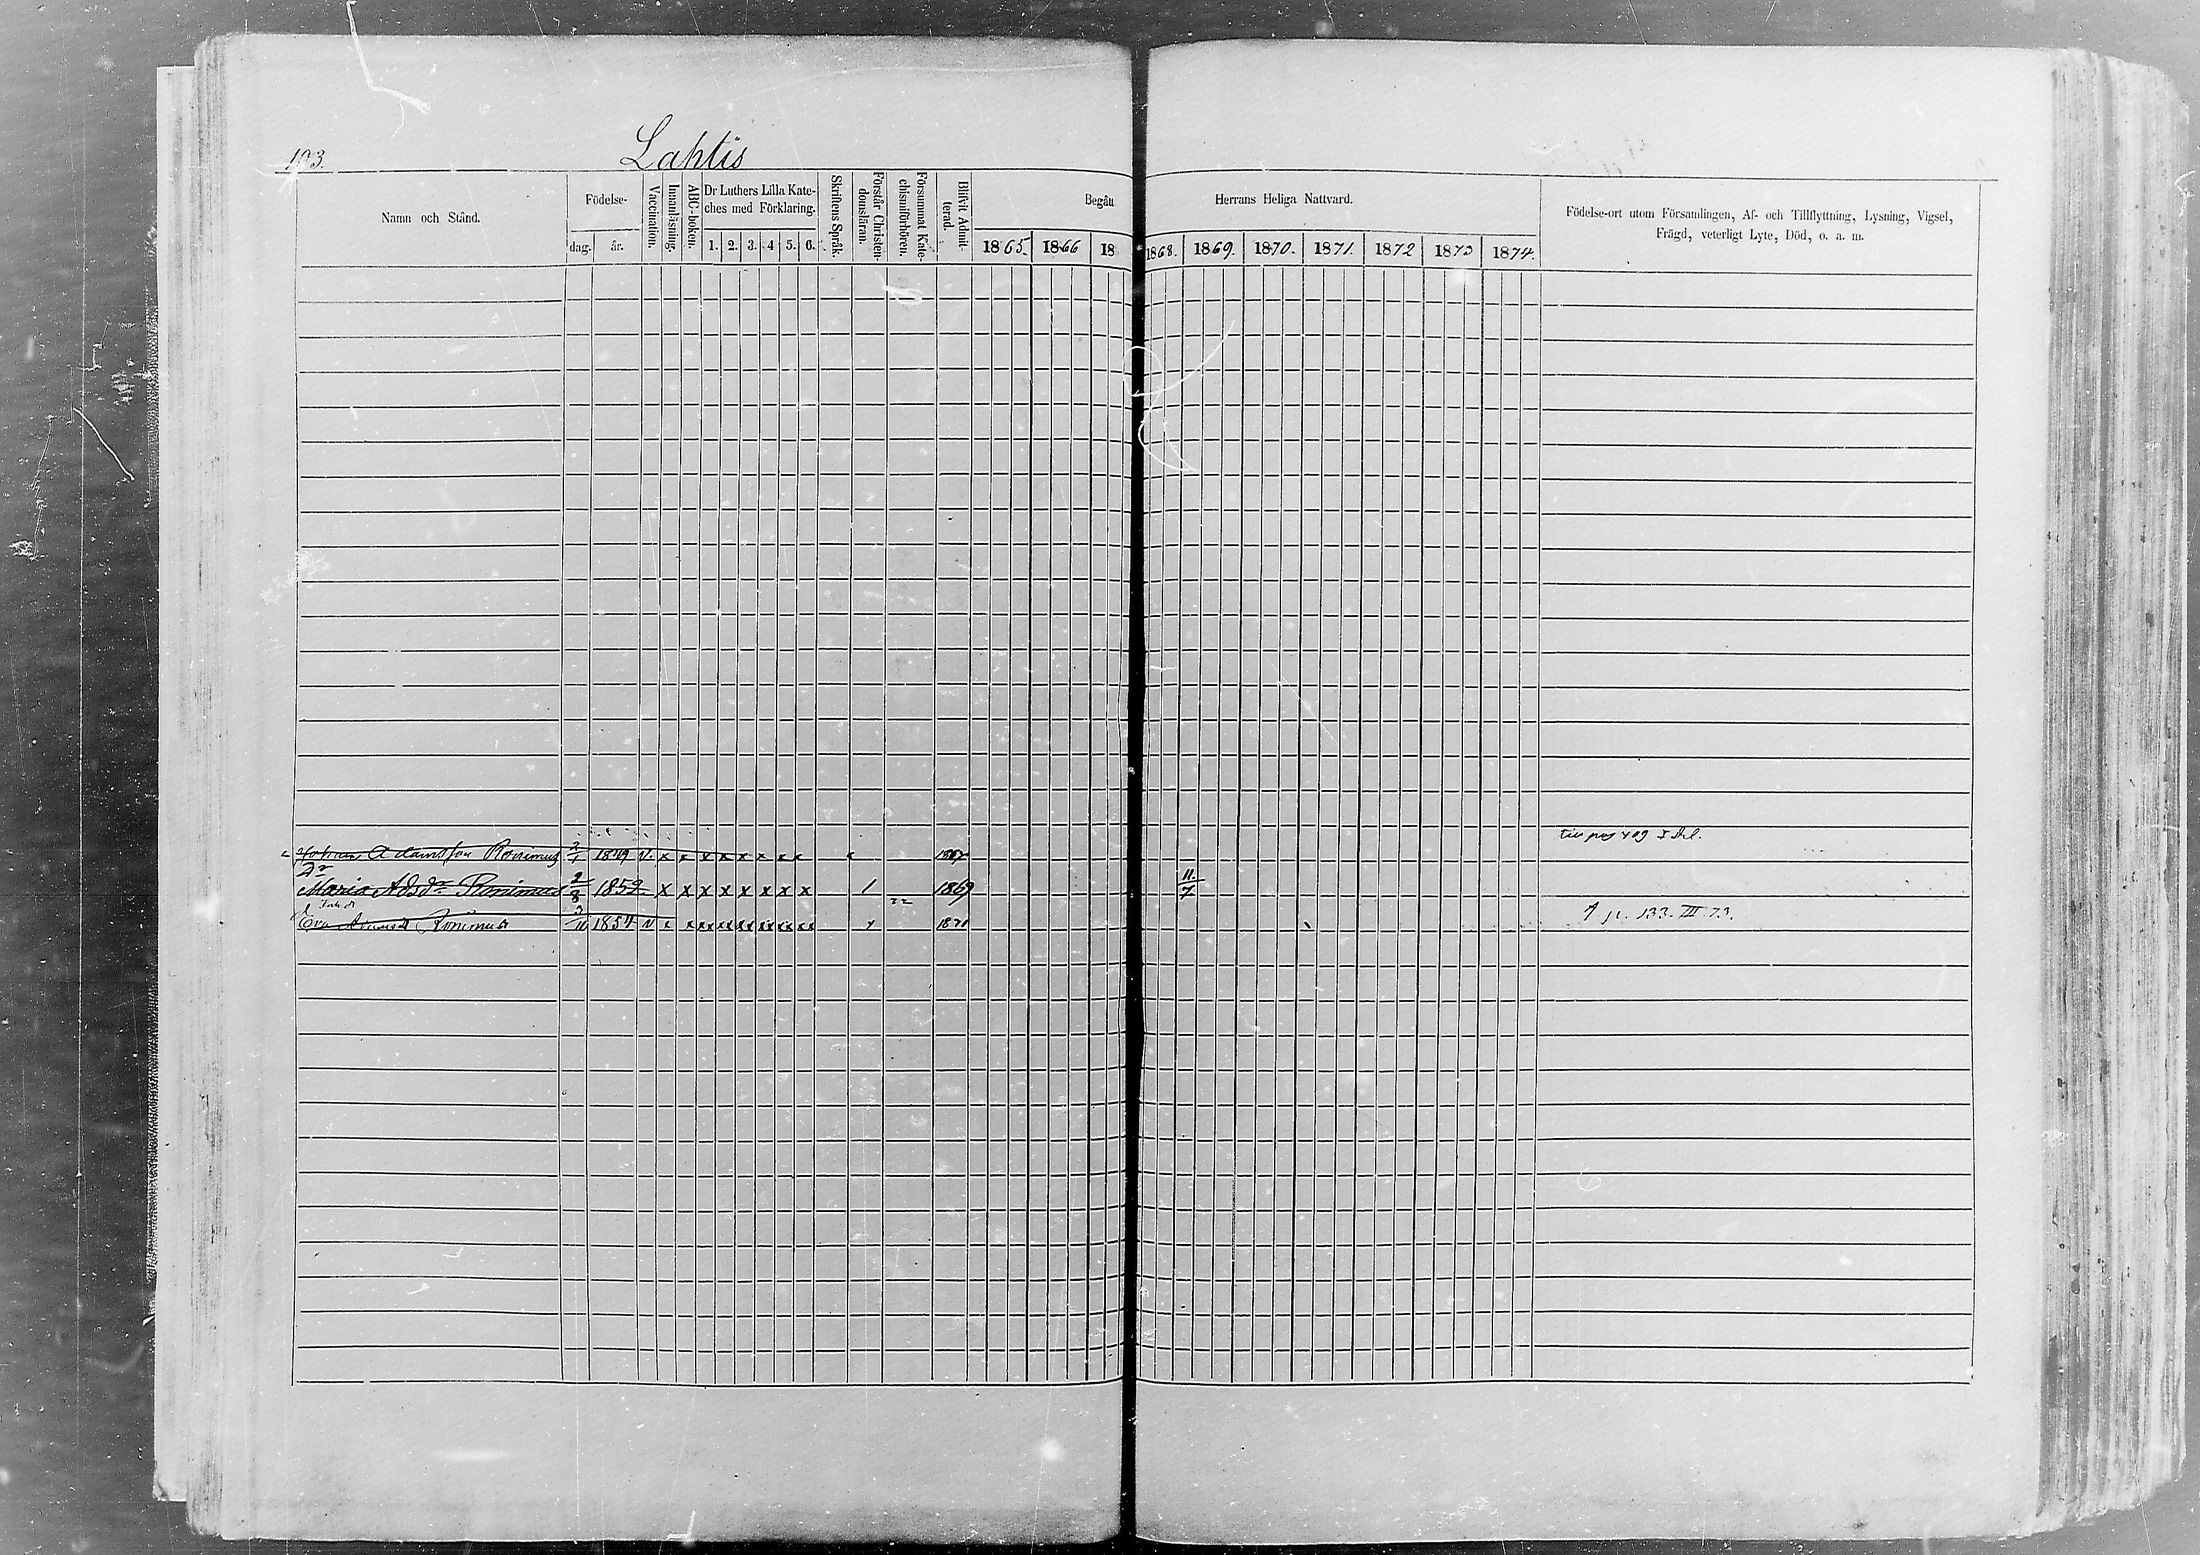 193.
Lahtis
Namn och Stånd.
Födelse-
dag. år.
Vaccination.
Innanläsning.
ABC-boken.
Dr Luthers Lilla Kate-
ches med Förklaring.
1. 2. 3. 4 5. 6.
Skriftens Språk.
Förstår Christen-
domsläran.
Försummat Kate-
chismiförhören.
Blifvit Admit-
terad.
Begått
1865. 1866 18
Herrans Heliga Nattvard.
1868. 1869. 1870. 1871. 1872 1873 1874.
Födelse-ort utom Församlingen, Af- och Tillflyttning, Lysning, Vigsel,
Frägd, veterligt Lyte, Död, o. a. m.
Johan Adamsson Ronimus 2/1 1849 v. x x x x x x x x 1867
Dr
Maria Adsdr Ronimus 2/8 1852 x x x x x x x x 1 1869 11/7
Eva Ronimus 3/11 1854 v x x xx xx xx xx xx xx 1871
133. III 73.